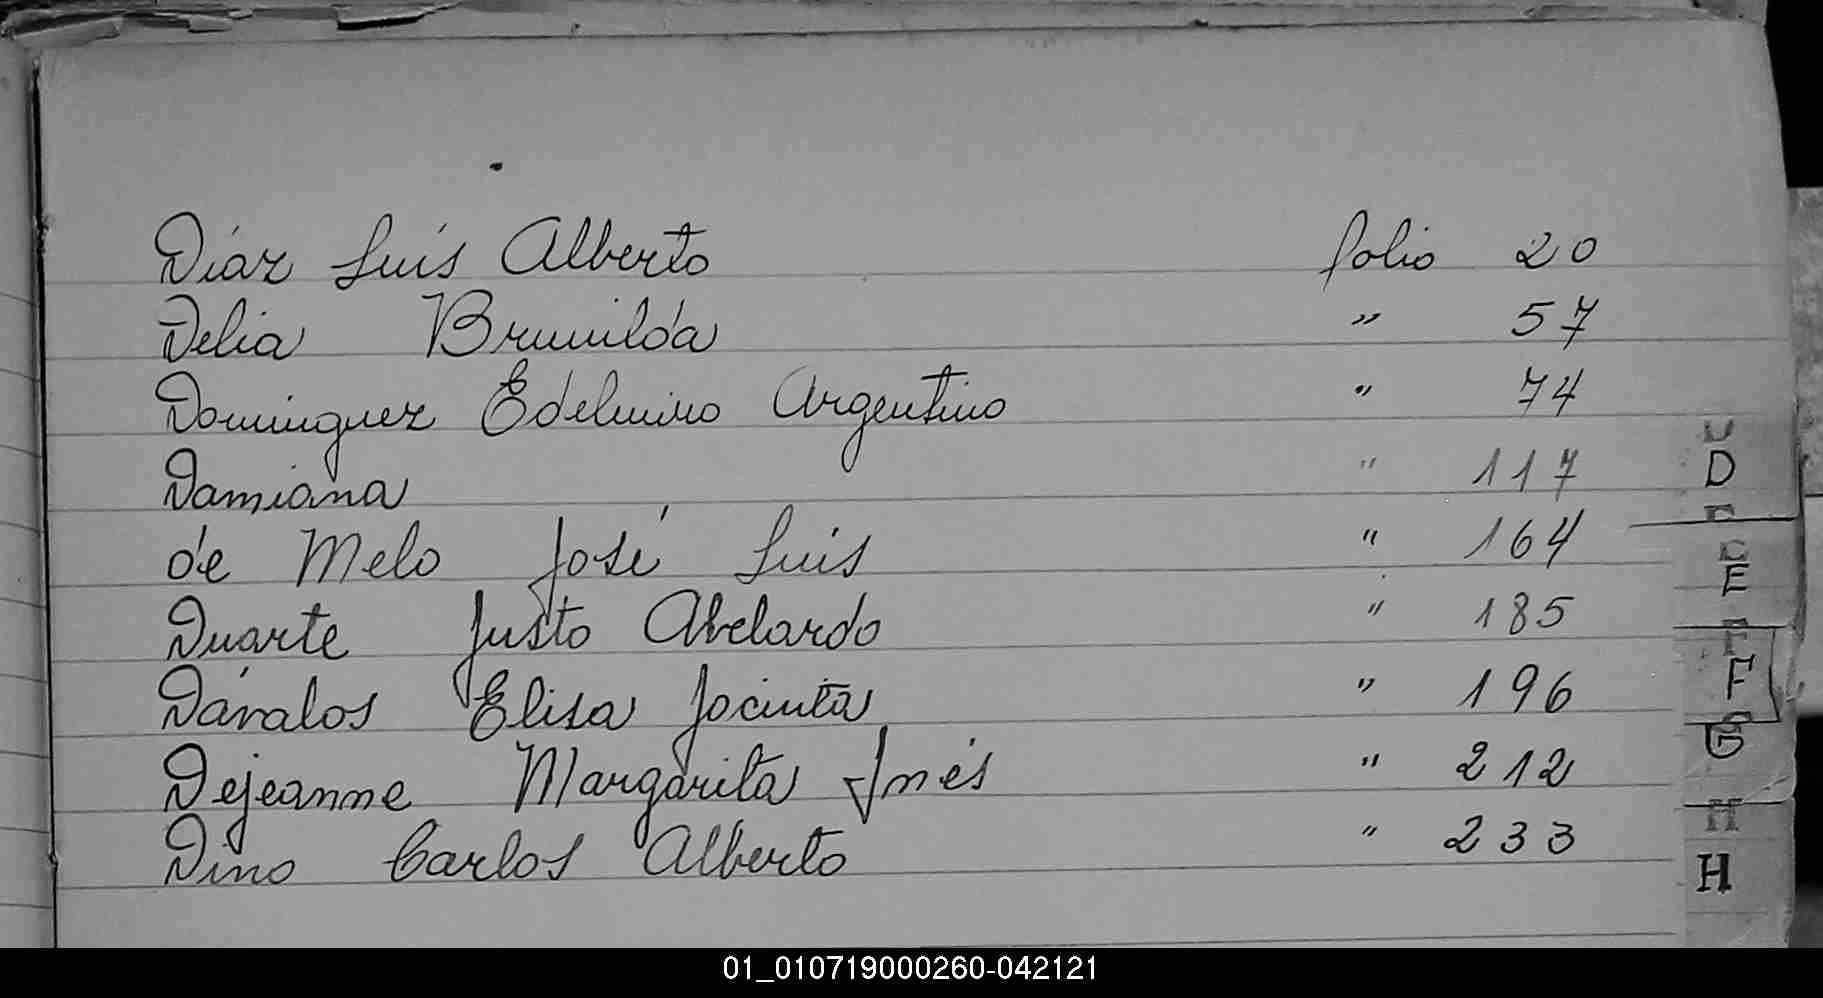 Díaz Luis Alberto folio 20
Delia Brunilda " 57
Dominguez Edelmiro Argentino " 74
Damiana " 117
de Melo José Luis " 164
Duarte Justo Abelardo " 185
Dávalos Elisa Jacinta " 196
Dejeanne Margarita Inés " 212
Dino Carlos Alberto " 233
D
E
F
G
H
H
01_010719000260-042121